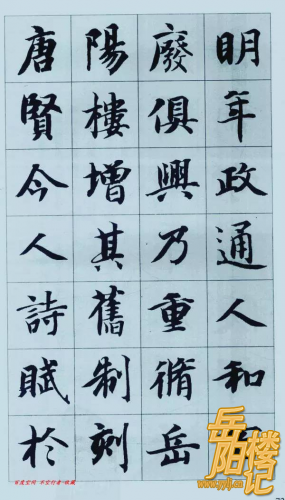 明年政通人和
廢俱興乃重脩岳
陽樓增其舊制刻
唐賢今人詩賦於
岳阳楼记